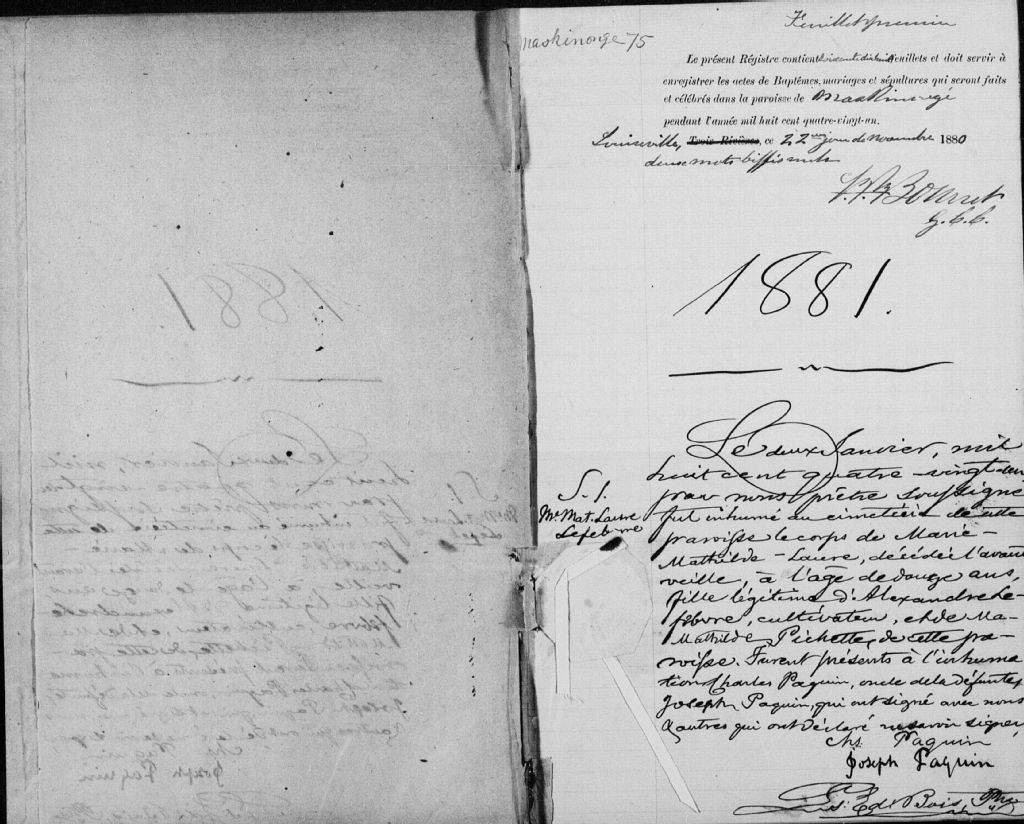 Feuillet premier
Maskinongé 75
Le présent Régistre contient feuillets et doit servir à
enregistrer les actes de Baptêmes, mariages et sépultures qui seront faits
et célébrés dans la paroisse de Maskinongé
pendant l'année mil huit cent quatre-vingt-un.
Louiseville, Trois-Rivières, ce 22 jour de novembre 1880
deux mots biffés nuls
G. C. C.
1881.
Le deux Janvier, mil
huit cent quatre-vingt-un
par nous prêtre soussigné
fut inhumé au cimetière de cette
S. 1.
Me Mat. Laure
Lefebvre
paroisse le corps de Marie-
Mathilde-Laure, décédée l'avant
veille, à l'âge de douze ans,
fille légitime d'Alexandre Le-
febvre, cultivateur, et de Ma-
Mathilde Pichette, de cette pa-
roisse. Furent présents à l'inhuma
tion Charles Paquin, oncle de la défunte,
Joseph Paquin, qui ont signé avec nous
& autres qui ont déclaré ne savoir signer,
Chs Paquin
Joseph Paquin
Ls. Ed. Bois, Ptre